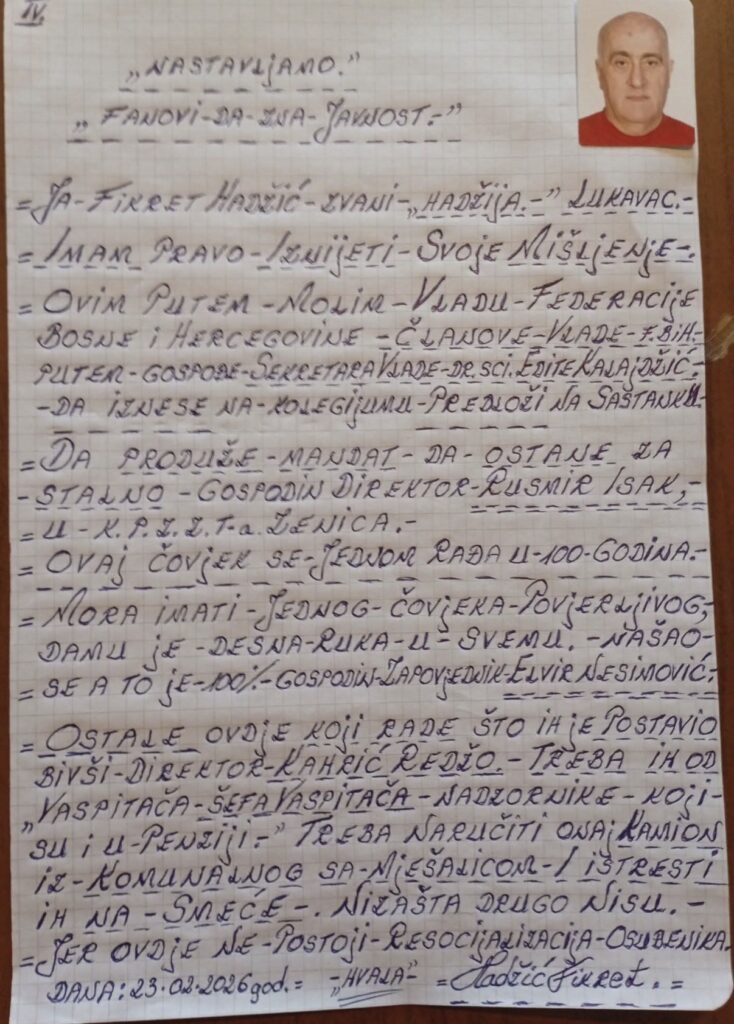 IV.
„NASTAVLJAMO.”
„FANOVI-DA-ZNA-JAVNOST.-”
=JA-FIKRET HADŽIĆ-ZVANI-„HADŽIJA.-” LUKAVAC.-
=IMAM PRAVO-IZNIJETI-SVOJE MIŠLJENJE-.
=OVIM PUTEM-MOLIM-VLADU-FEDERACIJE
BOSNE I HERCEGOVINE-ČLANOVE-VLADE-F.BiH.-
PUTEM-GOSPOĐE-SEKRETARA VLADE-DR.SCI.EDITE KALAJDŽIĆ.-
-DA IZNESE NA-KOLEGIJUMU-PREDLOŽI NA SASTANKU-
=DA PRODUŽE-MANDAT-DA-OSTANE ZA
-STALNO-GOSPODIN DIREKTOR-RUSMIR ISAK,-
=U-K.P.Z.Z.T-a ZENICA.-
=OVAJ ČOVJEK SE-JEDNOM RAĐA U-100-GODINA.-
=MORA IMATI-JEDNOG-ČOVJEKA-POVJERLJIVOG,
DAMU JE-DESNA-RUKA-U-SVEMU.-NAŠAO-
=SE A TO JE-100%-GOSPODIN-ZAPOVJEDNIK-ELVIR NESIMOVIĆ.-
=OSTALE OVDJE KOJI RADE ŠTO IH JE POSTAVIO
BIVŠI-DIREKTOR-KAHRIĆ REDŽO.-TREBA IH OD
„VASPITAČA-ŠEFA VASPITAČA-NADZORNIKE-KOJI-
SU I U-PENZIJI.-” TREBA NARUČITI ONAJ KAMION
IZ-KOMUNALNOG SA-MJEŠALICOM-I ISTRESTI
IH NA-SMEĆE-. NIZAŠTA DRUGO NISU.-
=JER OVDJE NE-POSTOJI-RESOCIJALIZACIJA-OSUĐENIKA.
DANA:23.02.2026god.= -„HVALA”- =Hadžić Fikret.=